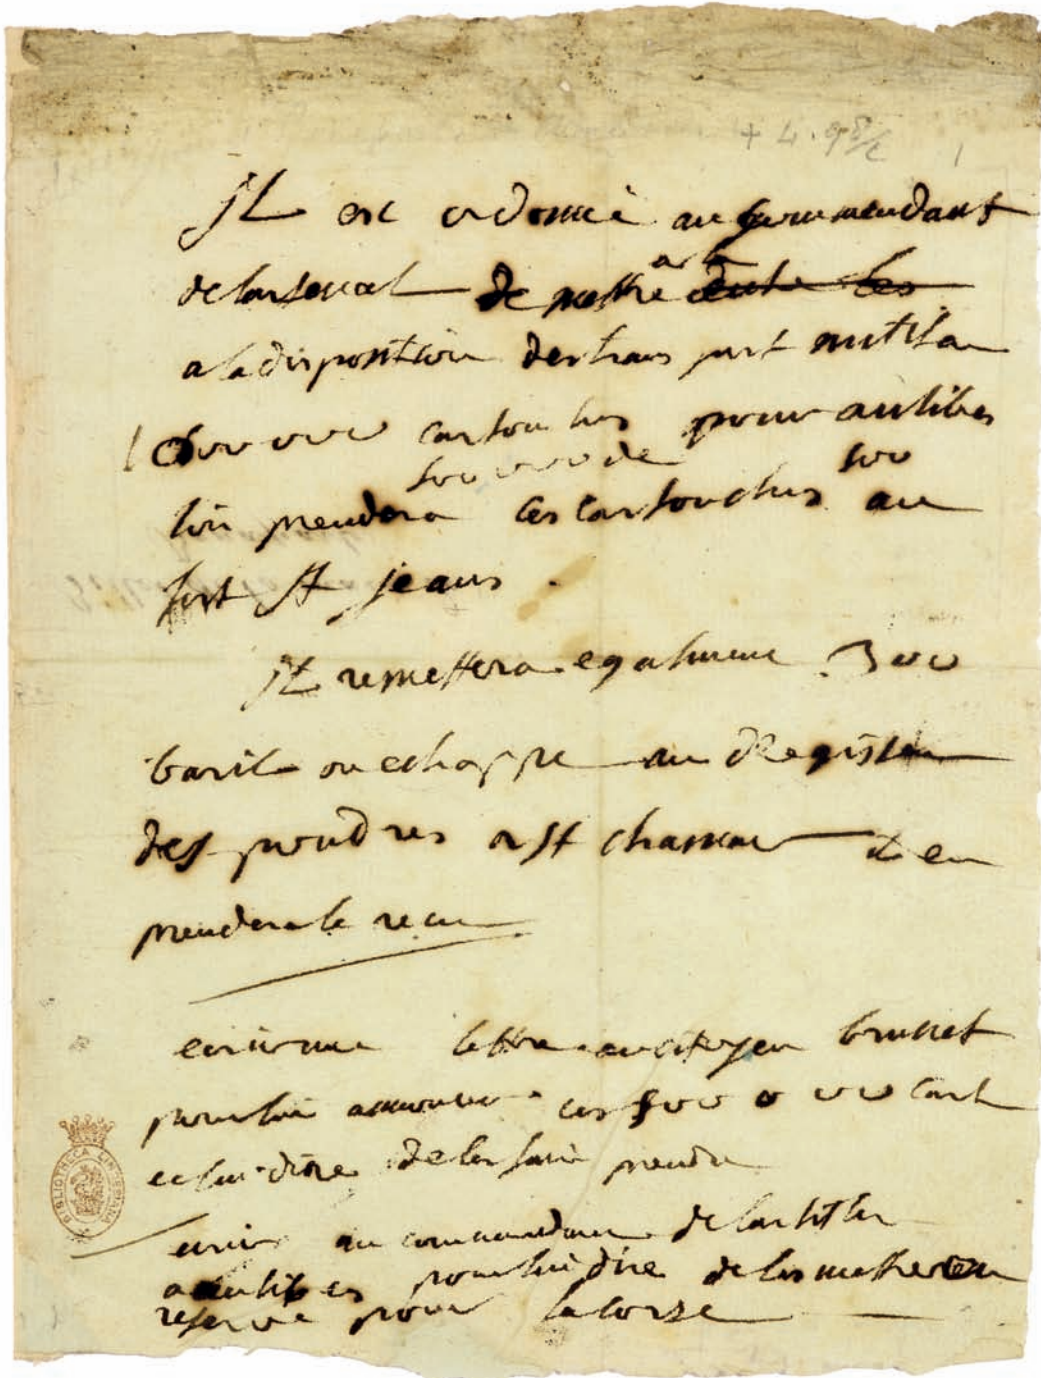 Il est ordonné au commandant
de larsenal de mettre
a la disposition des transport militar
cartouches pour antibes
500000 de 500
lon prendera ces cartouches au
fort St jeans .
Il remettera egalmene 300
baril ou echappe au Regisseur
des poudres a St chamas et en
prendera le recu
ecrire une lettre au citoyen brunet
pour lui annoncer ces 500 000 cart
et lui dire de les faire prendre
ecrire au commandant de lartiller
a antibes pour lui dire de les mettre en
reserve pour la corse
BIBLIOTHECA LINDESIANA